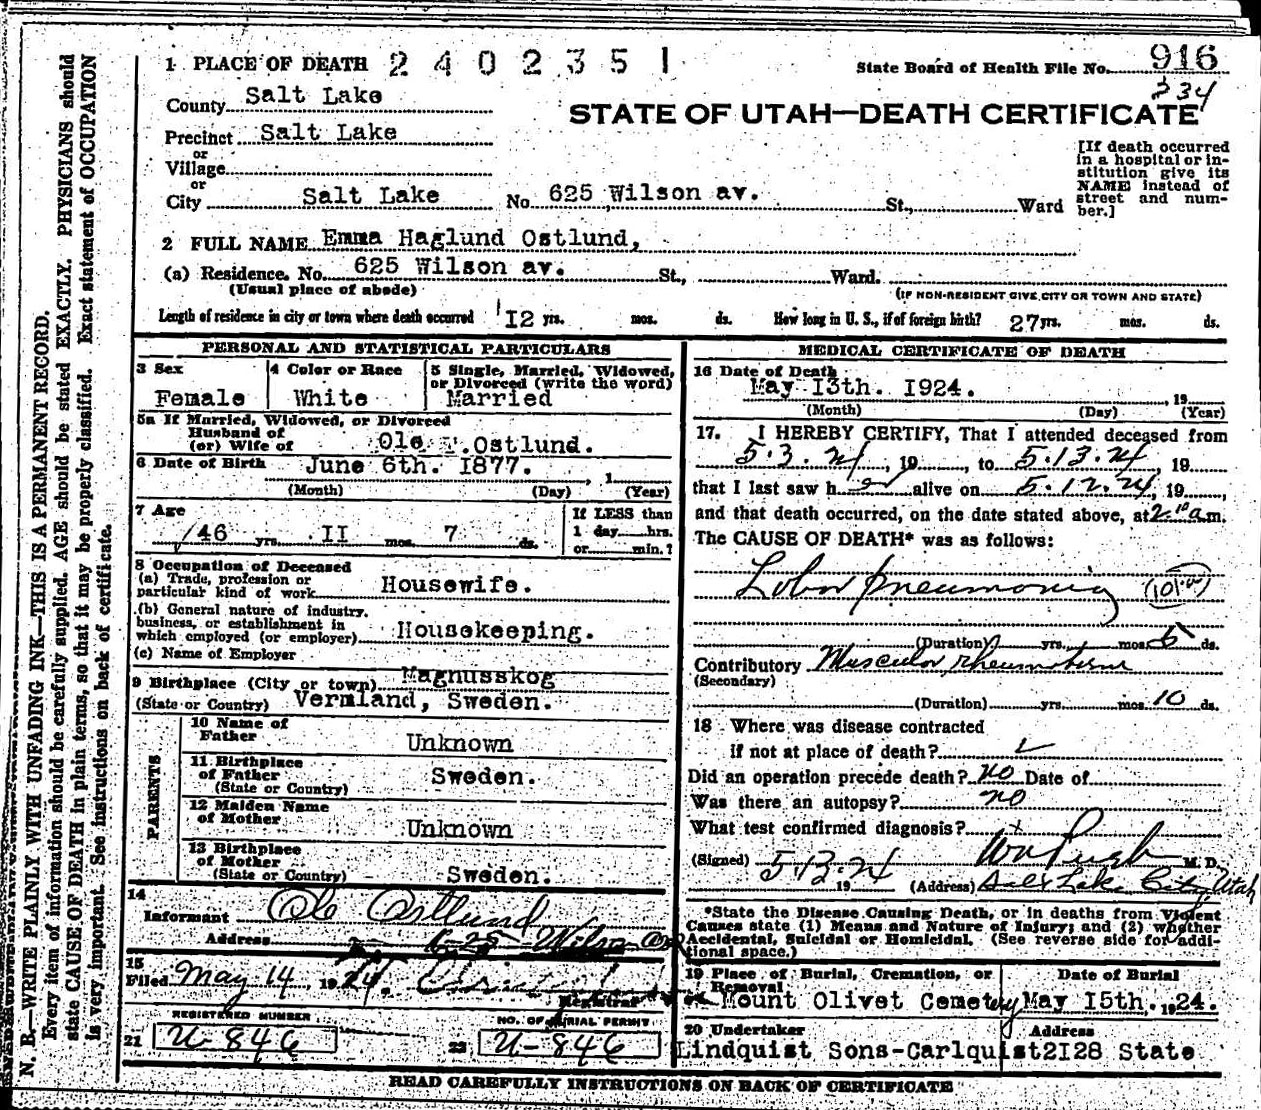 1 PLACE OF DEATH 2402351
State Board of Health File No. 916
234
County Salt Lake
STATE OF UTAH—DEATH CERTIFICATE
Precinct Salt Lake
or
Village
or
City Salt Lake No. 625 Wilson av. St., Ward
[If death occurred
in a hospital or in-
stitution give its
NAME instead of
street and num-
ber.]
2 FULL NAME Emma Haglund Ostlund,
(a) Residence. No. 625 Wilson av. St., Ward.
(Usual place of abode) (IF NON-RESIDENT GIVE CITY OR TOWN AND STATE)
Length of residence in city or town where death occurred I2 yrs. mos. ds. How long in U. S., if of foreign birth? 27 yrs. mos. ds.
PERSONAL AND STATISTICAL PARTICULARS
3 Sex 4 Color or Race 5 Single, Married, Widowed,
or Divorced (write the word)
Female White Married
5a If Married, Widowed, or Divorced
Husband of
(or) Wife of Ole T. Ostlund.
6 Date of Birth June 6th. I877. , 1
(Month) (Day) (Year)
7 Age If LESS than
46 yrs. II mos. 7 ds. 1 day hrs.
or min.?
8 Occupation of Deceased
(a) Trade, profession or
particular kind of work Housewife.
(b) General nature of industry,
business, or establishment in
which employed (or employer) Housekeeping.
(c) Name of Employer
9 Birthplace (City or town) Magnusskog
(State or Country) Vermland, Sweden.
PARENTS
10 Name of
Father Unknown
11 Birthplace
of Father Sweden.
(State or Country)
12 Maiden Name
of Mother Unknown
13 Birthplace
of Mother
(State or Country) Sweden.
14
Informant Ole Ostlund
Address 625 Wilson
15
Filed May 14, 1924.
Registrar
REGISTERED NUMBER NO. OF BURIAL PERMIT
21 U-846 22 U-846
MEDICAL CERTIFICATE OF DEATH
16 Date of Death
May I3th. I924. , 19
(Month) (Day) (Year)
17. I HEREBY CERTIFY, That I attended deceased from
5.3.24, 19, to 5.13.24, 19
that I last saw her alive on 5.12.24, 19,
and that death occurred, on the date stated above, at 2 10 a m.
The CAUSE OF DEATH* was as follows:
Lobar pneumonia
(Duration) yrs. mos. 5 ds.
Contributory Muscular rheumatism
(Secondary)
(Duration) yrs. mos. 10 ds.
18 Where was disease contracted
If not at place of death?
Did an operation precede death? no Date of
Was there an autopsy? no
What test confirmed diagnosis?
(Signed) Wm Pugh M. D.
5.13.24 19 (Address) Salt Lake City, Utah
*State the Disease Causing Death, or in deaths from Violent
Causes state (1) Means and Nature of Injury; and (2) whether
Accidental, Suicidal or Homicidal. (See reverse side for addi-
tional space.)
19 Place of Burial, Cremation, or Date of Burial
Removal
Mount Olivet Cemetery May I5th. 1924.
20 Undertaker Address
Lindquist Sons-Carlquist 2I28 State
READ CAREFULLY INSTRUCTIONS ON BACK OF CERTIFICATE
N. B.—WRITE PLAINLY WITH UNFADING INK—THIS IS A PERMANENT RECORD.
Every item of information should be carefully supplied. AGE should be stated EXACTLY. PHYSICIANS should
state CAUSE OF DEATH in plain terms, so that it may be properly classified. Exact statement of OCCUPATION
is very important. See instructions on back of certificate.